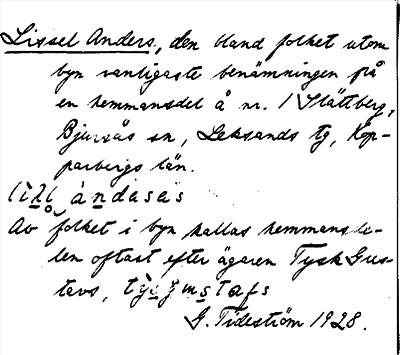 Lissel Anders, den bland folket utom
byn vanligaste benämningen på
en hemmansdel å nr. 1 Slättberg,
Bjursås sn, Leksands tg, Kop-
parbergs län.
Av folket i byn kallas hemmansde-
len oftast efter ägaren Tysk Gus-
tavs,
G. Tideström 1928.